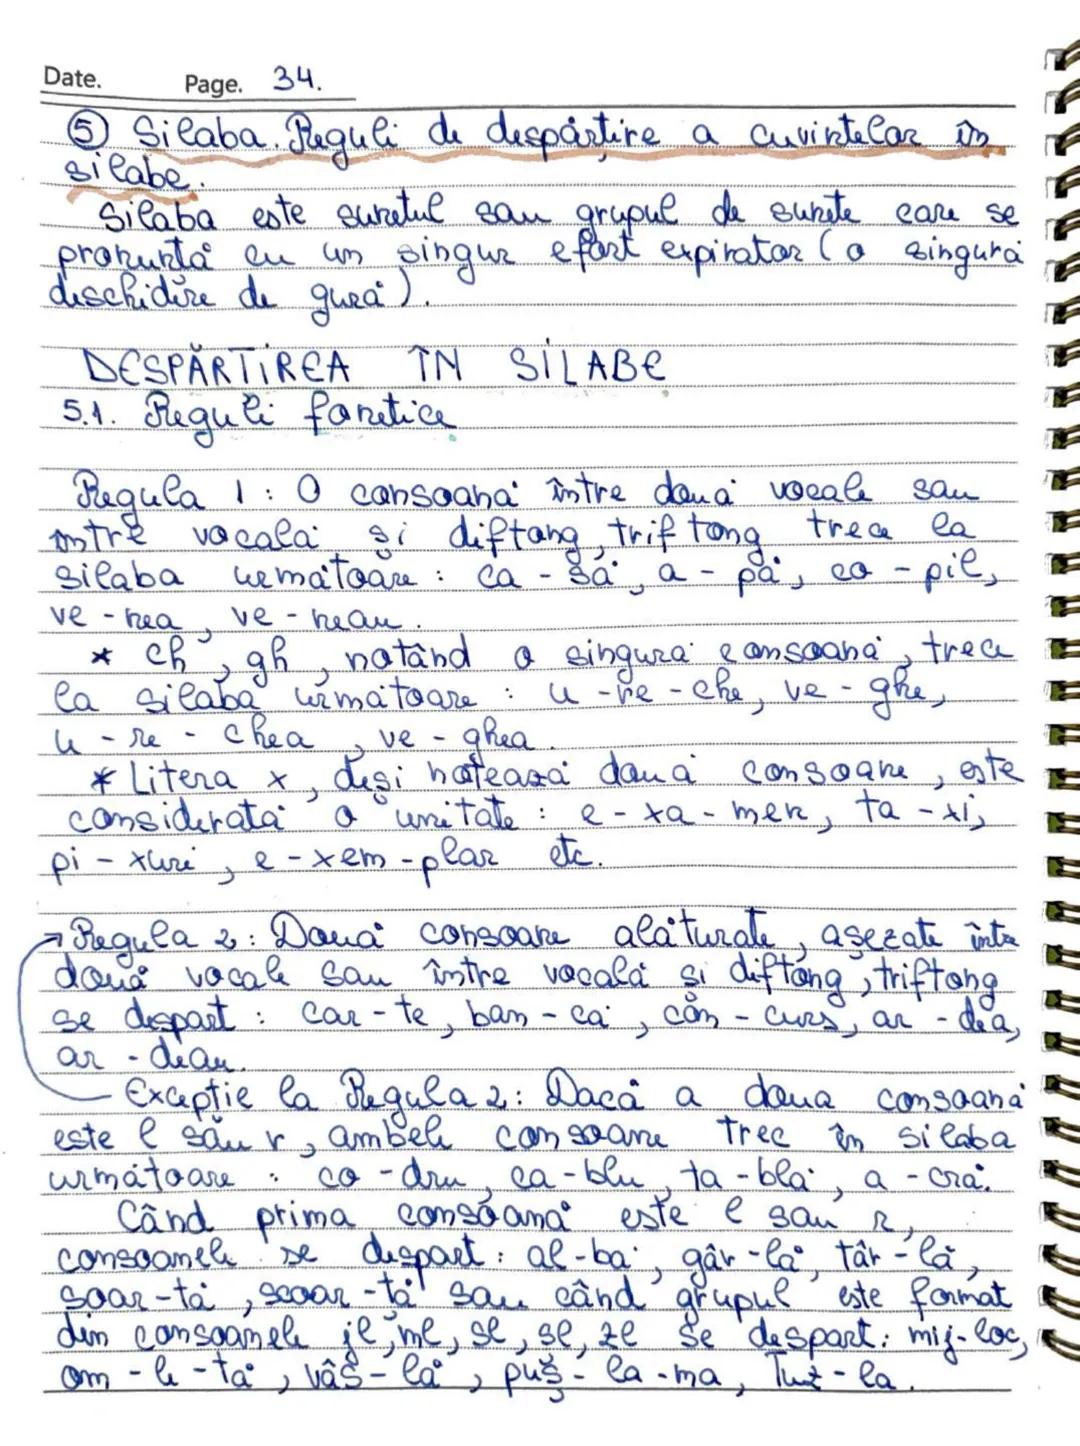 Date. Page. 34.
⑤ Silaba. Reguli de despărțire a cuvintelor în
silabe.
Silaba este sunetul sau grupul de sunete care se
pronunță cu un singur efort expirator (o singură
deschidere de gură).
DESPĂRȚIREA ÎN SILABE
5.1. Reguli fonetice
Regula 1: O consoană între două vocale sau
între vocală și diftong, triftong trece la
silaba următoare: ca - să, a - pă, co - pil,
ve - nea, ve - neau.
* ch, gh, notând o singură consoană, trece
la silaba următoare: u - re - che, ve - ghe,
u - re - chea, ve - ghea.
* Litera x, deși notează două consoane, este
considerată o unitate: e - xa - men, ta - xi,
pi - xuri, e - xem - plar etc.
→ Regula 2: Două consoane alăturate, așezate între
două vocale sau între vocală și diftong, triftong
se despart: car - te, ban - că, con - curs, ar - dea,
ar - deau.
Excepție la Regula 2: Dacă a doua consoană
este l sau r, ambele consoane trec în silaba
următoare: co - dru, ca - blu, ta - blă, a - cră.
Când prima consoană este l sau r,
consoanele se despart: al - bă, gâr - lă, târ - lă,
soar - tă, scoar - ță sau când grupul este format
din consoanele jl, ml, sl, șl, zl se despart: mij - loc,
om - le - tă, vâs - lă, puș - la - ma, Tuz - la.